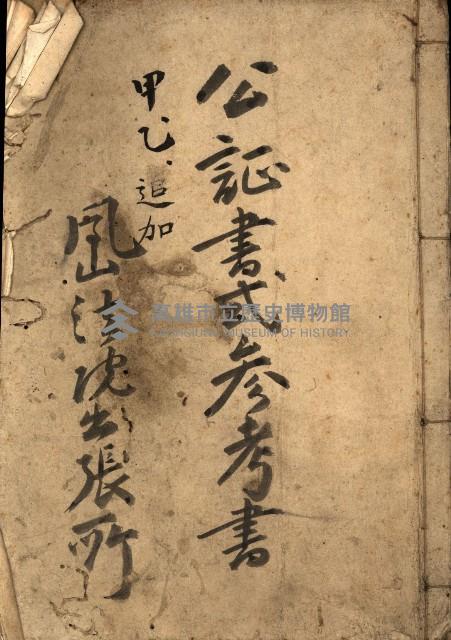 公証書式参考書
甲乙、追加
鳳山法院出張所
高雄市立歷史博物館
KAOHSIUNG MUSEUM OF HISTORY